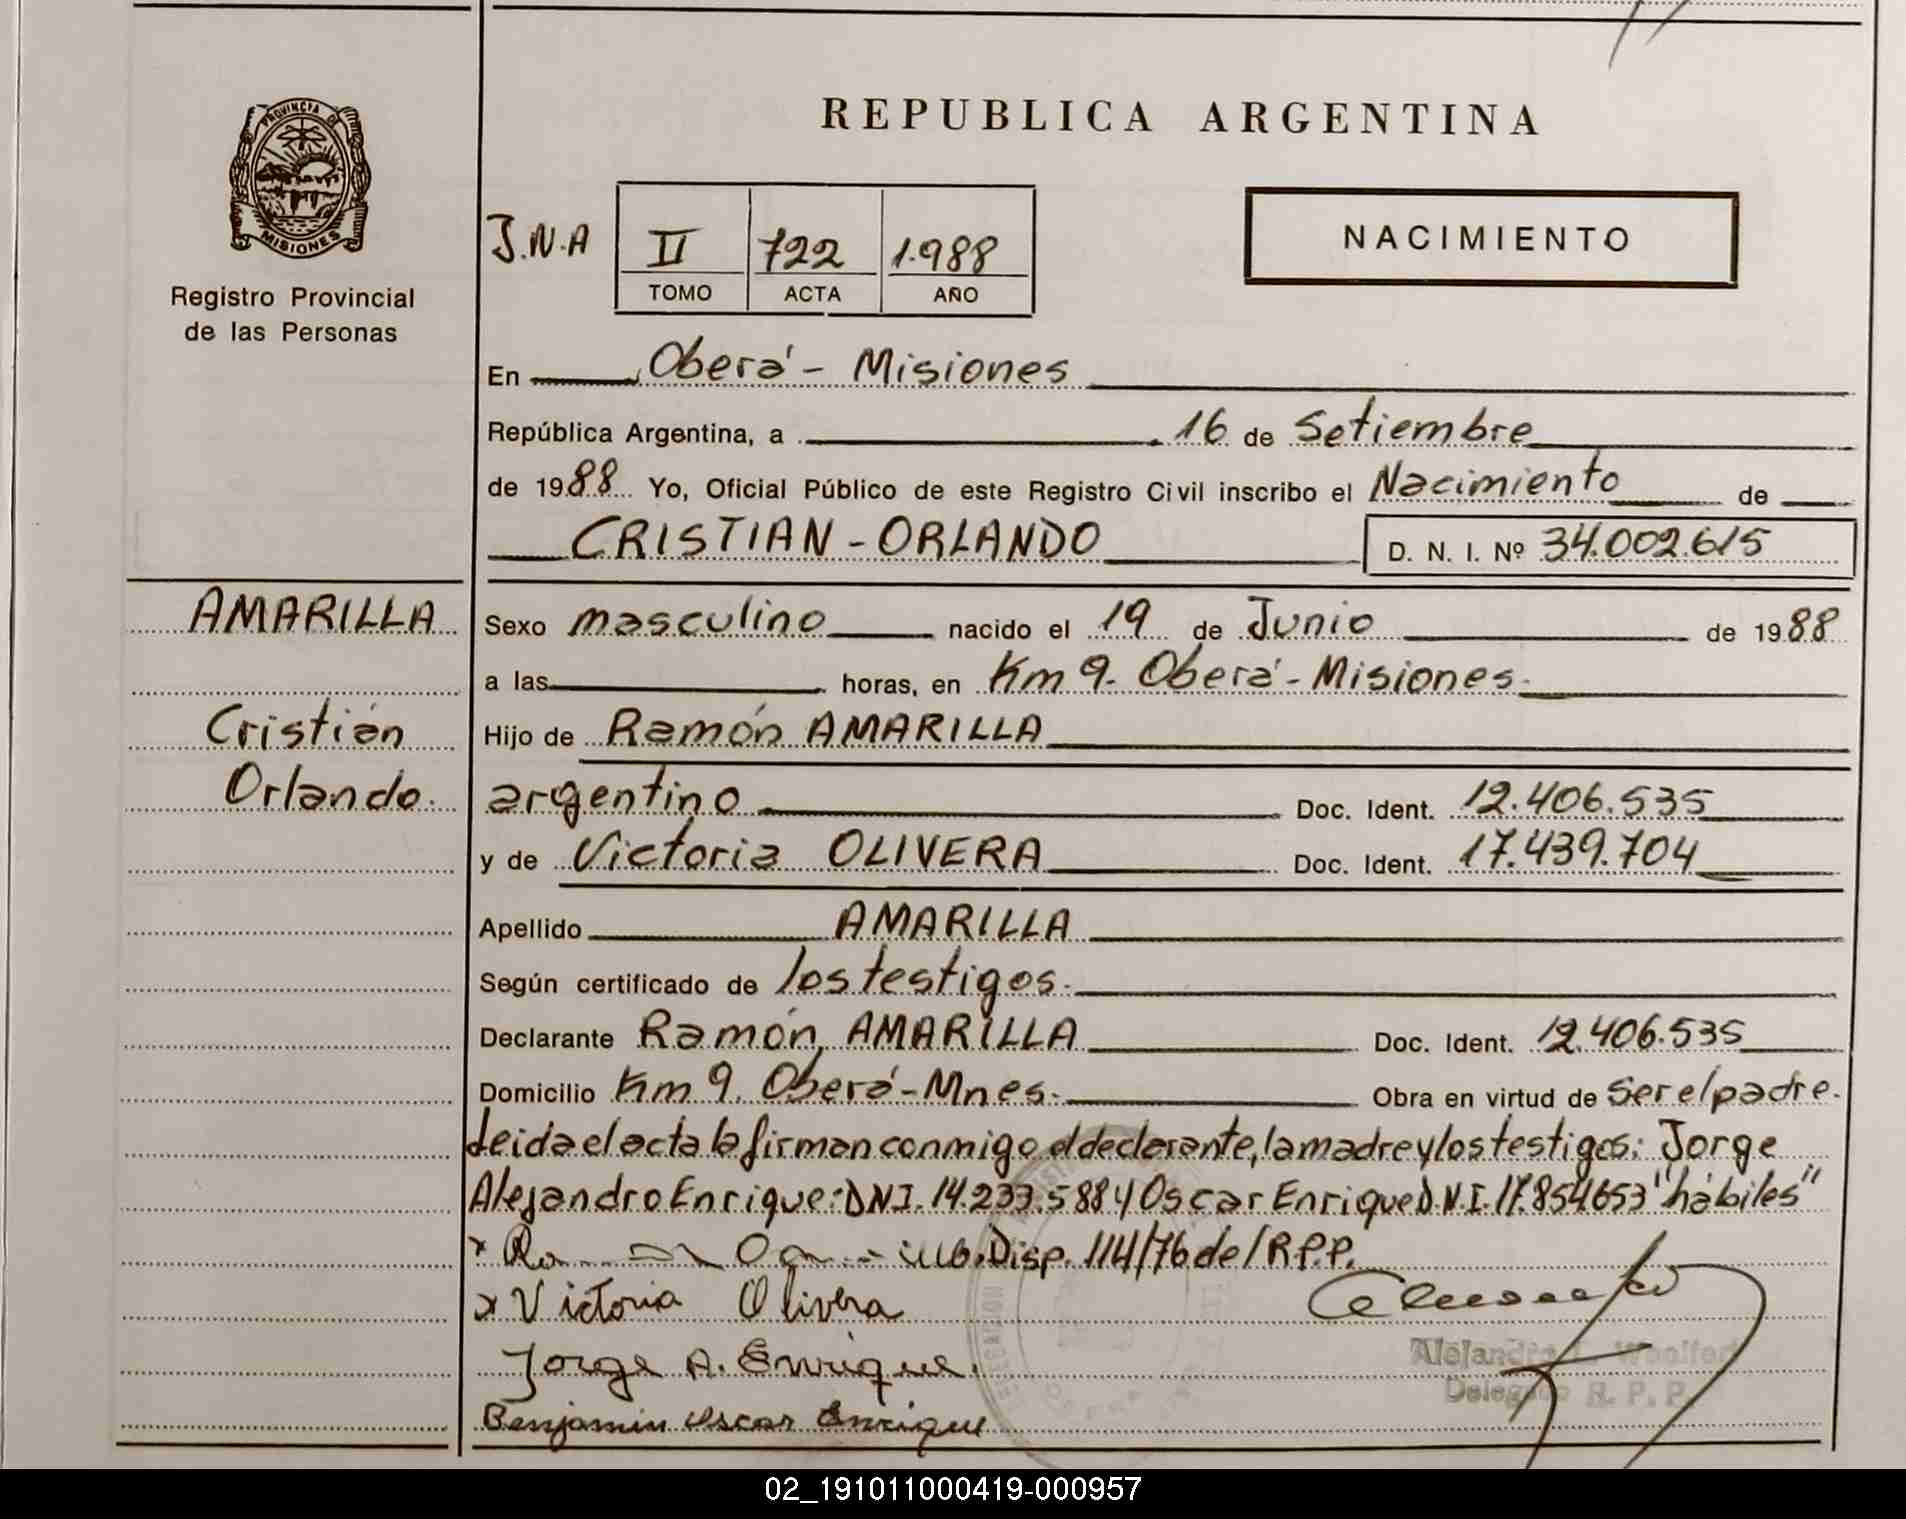 REPUBLICA ARGENTINA
PROVINCIA DE
MISIONES
Registro Provincial
de las Personas
J.N.A
II 722 1.988
TOMO ACTA AÑO
NACIMIENTO
En Oberá - Misiones
República Argentina, a 16 de Setiembre
de 1988 Yo, Oficial Público de este Registro Civil inscribo el Nacimiento de
CRISTIAN - ORLANDO D. N. I. Nº 34.002.615
AMARILLA
Cristián
Orlando.
Sexo masculino nacido el 19 de Junio de 1988
a las horas, en Km 9. Oberá - Misiones.
Hijo de Ramón AMARILLA
argentino Doc. Ident. 12.406.535
y de Victoria OLIVERA Doc. Ident. 17.439.704
Apellido AMARILLA
Según certificado de los testigos.
Declarante Ramón AMARILLA Doc. Ident. 12.406.535
Domicilio Km 9. Oberá - Mnes. Obra en virtud de ser el padre.
Leida el acta la firman conmigo el declarante, la madre y los testigos: Jorge
Alejandro Enrique: DNI. 14.233.588 y Oscar Enrique D.N.I. 17.854653 "hábiles"
Disp. 114/76 del R.P.P.
x Victoria Olivera
Jorge A. Enrique.
Benjamin Oscar Enrique
Alejandro
Delegado R. P. P.
02_191011000419-000957